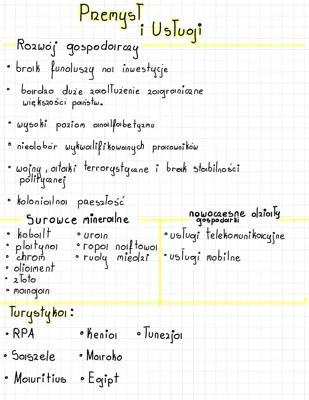 Przemysł
i Usługi
Rozwój gospodarczy
• brak funduszy na inwestycje
• bardzo duże zadłużenie zagraniczne
większości państw.
• wysoki poziom analfabetyzmu
• niedobór wykwalifikowanych pracowników
• wojny, ataki terrorystyczne i brak stabilności
politycznej
• kolonialna przeszłość
Surowce mineralne
• kobalt
• platyna
• chrom
• diament
• złoto
• mangan
• uran
• ropa naftowa
• rudy miedzi
nowoczesne działy
gospodarki
• usługi telekomunikacyjne
• usługi mobilne
Turystyka:
• RPA
• Kenia
• Tunezja
• Seszele
• Maroko
• Mauritius
• Egipt